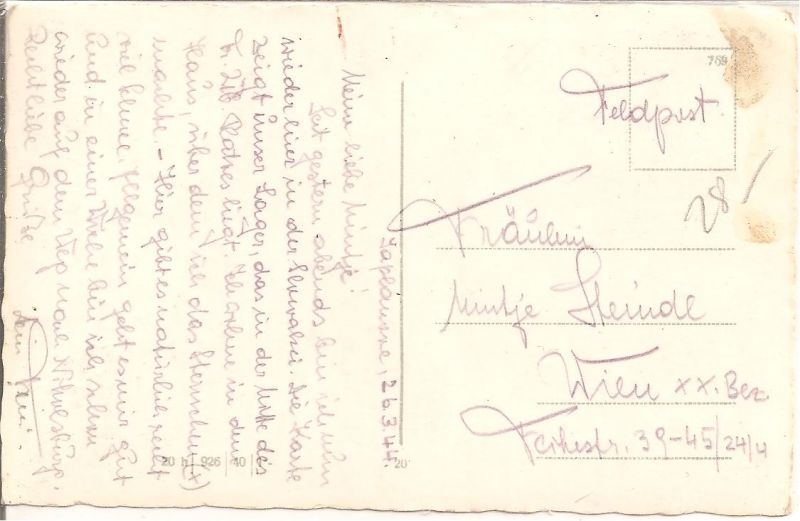 Zaplausse, 26.3.44.
Meine liebe Mintje!
Seit gestern abends bin ich nun
wieder hier in der Slowakei. Die Karte
zeigt unser Lager, das in der Mitte des
Bildes liegt. Ich wohne in dem
Haus, über dem ich das Sternchen (x)
machte – Hier gibt es natürlich recht
viel Schnee. Allgemein geht es mir gut
und in einer Woche bin ich schon
wieder auf dem Weg nach Nikolsburg.
Recht liebe Grüße
Dein
769
Feldpost
28/
Fräulein
Mintje Steindl
Wien XX. Bez.
39-45/24/4
20 h 926 40
20